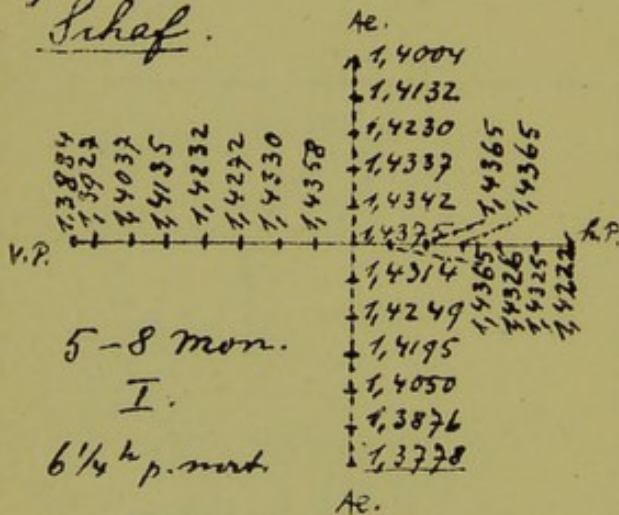 Schaf.
Ae.
1,4004
1,4132
1,4230
1,4337
1,4342
1,4375
1,4314
1,4249
1,4195
1,4050
1,3876
1,3778
Ae.
v.P.
1,3884
1,3927
1,4037
1,4135
1,4232
1,4272
1,4330
1,4358
1,4365
1,4365
1,4365
1,4326
1,4325
1,4222
h.P.
5-8 mon.
I.
6 1/4 h p. mort.